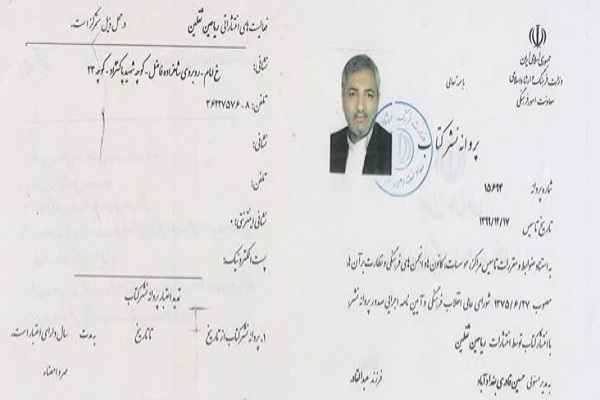 جمهوری اسلامی ایران
وزارت فرهنگ و ارشاد اسلامی
معاونت امور فرهنگی
باسمه تعالی
پروانه نشر کتاب
شماره پروانه ۱۵۶۹۴
تاریخ تاسیس ۱۳۹۹/۱۲/۱۷
به استناد ضوابط و مقررات تاسیس مراکز، موسسات، کانون ها و انجمن های فرهنگی و نظارت بر آن ها،
مصوب ۱۳۷۵/۶/۲۷ شورای عالی انقلاب فرهنگی و آیین نامه اجرایی صدور پروانه نشر؛
با انتشار کتاب توسط انتشارات ریاحین ثقلین
به مدیر مسئولی حسین قادری بغدادآباد فرزند عبدالقادر
فعالیت های انتشاراتی ریاحین ثقلین در محل ذیل متمرکز است.
نشانی: خ امام - روبروی شاهزاده فاضل - کوچه شهید پاکنژاد - کوچه ۲۳
تلفن: ۸-۳۶۲۲۷۵۷۶
نشانی:
تلفن:
نشانی اینترنتی: ۰
پست الکترونیک:
تمدید اعتبار پروانه نشر کتاب
۱. پروانه نشر کتاب از تاریخ تا تاریخ به مدت سال دارای اعتبار است.
مهر و امضاء